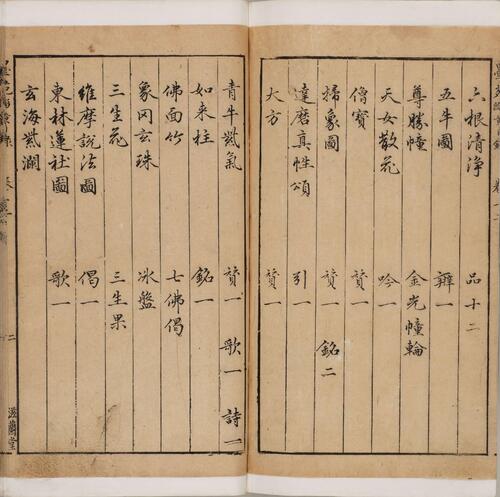 六根清淨 品十二
五牛圖 辨一
尊勝幢 金光幢輪
天女散花 吟一
僧寶 贊一
掃象圖 贊一 銘二
達磨真性頌 引一
大方 贊一
青牛紫氣 贊一 歌一 詩一
如来柱 銘一
佛面竹 七佛偈
象罔玄珠 冰盤
三生花 三生果
維摩說法圖 偈一
東林蓮社圖 歌一
玄海紫瀾
二
滋蘭堂